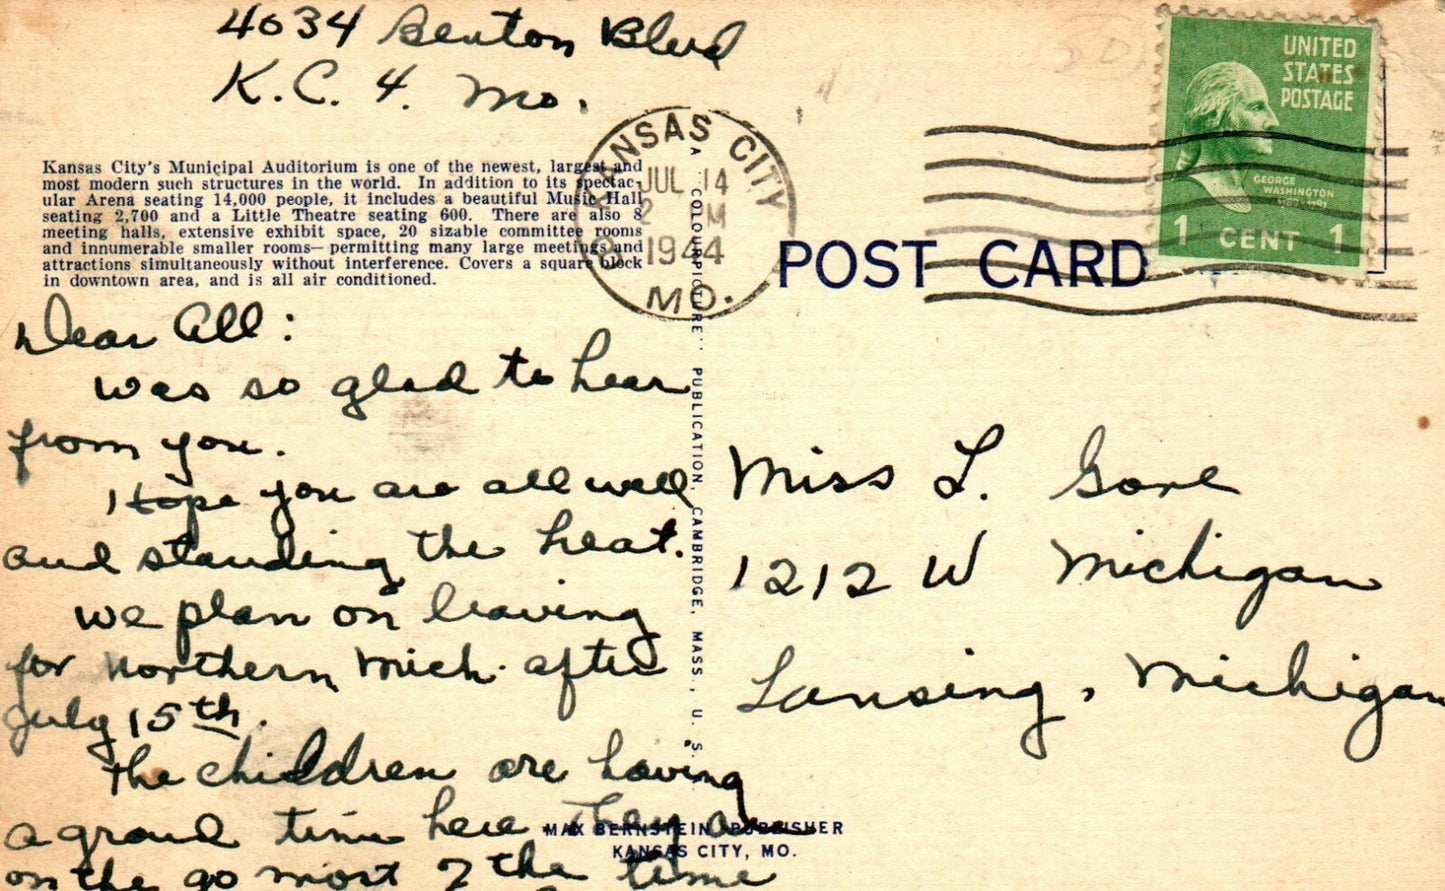 4034 Benton Blvd
K.C. 4. Mo.
Kansas City's Municipal Auditorium is one of the newest, largest and
most modern such structures in the world. In addition to its spectac-
ular Arena seating 14,000 people, it includes a beautiful Music Hall
seating 2,700 and a Little Theatre seating 600. There are also 8
meeting halls, extensive exhibit space, 20 sizable committee rooms
and innumerable smaller rooms—permitting many large meetings and
attractions simultaneously without interference. Covers a square block
in downtown area, and is all air conditioned.
KANSAS CITY
JUL 14
2 M
1944
MO.
UNITED
STATES
POSTAGE
GEORGE
WASHINGTON
1 CENT 1
POST CARD
Dear All:
was so glad to hear
from you.
Hope you are all well
and standing the heat.
we plan on leaving
for northern Mich. after
July 15th.
the children are having
a grand time here They are
on the go most of the time
A "COLOURPICTURE" PUBLICATION, CAMBRIDGE, MASS., U. S.
Miss L. Gore
1212 W Michigan
Lansing, Michigan
MAX BERNSTEIN, PUBLISHER
KANSAS CITY, MO.